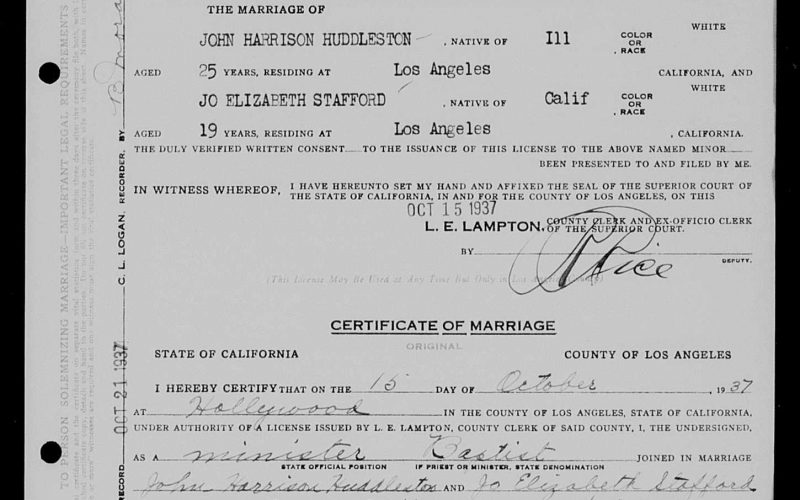 THE MARRIAGE OF WHITE
JOHN HARRISON HUDDLESTON , NATIVE OF Ill COLOR OR RACE
AGED 25 YEARS, RESIDING AT Los Angeles CALIFORNIA, AND
JO ELIZABETH STAFFORD , NATIVE OF Calif COLOR OR RACE WHITE
AGED 19 YEARS, RESIDING AT Los Angeles , CALIFORNIA.
THE DULY VERIFIED WRITTEN CONSENT TO THE ISSUANCE OF THIS LICENSE TO THE ABOVE NAMED MINOR
BEEN PRESENTED TO AND FILED BY ME.
IN WITNESS WHEREOF, I HAVE HEREUNTO SET MY HAND AND AFFIXED THE SEAL OF THE SUPERIOR COURT OF
THE STATE OF CALIFORNIA, IN AND FOR THE COUNTY OF LOS ANGELES, ON THIS
OCT 15 1937
L. E. LAMPTON, COUNTY CLERK AND EX-OFFICIO CLERK
OF THE SUPERIOR COURT.
BY Price
DEPUTY.
(This License May Be Used at Any Time But Only in Los
CERTIFICATE OF MARRIAGE
ORIGINAL
STATE OF CALIFORNIA COUNTY OF LOS ANGELES
I HEREBY CERTIFY THAT ON THE 15 DAY OF October , 1937
AT Hollywood IN THE COUNTY OF LOS ANGELES, STATE OF CALIFORNIA,
UNDER AUTHORITY OF A LICENSE ISSUED BY L. E. LAMPTON, COUNTY CLERK OF SAID COUNTY, I, THE UNDERSIGNED,
AS A minister Baptist JOINED IN MARRIAGE
STATE OFFICIAL POSITION IF PRIEST OR MINISTER, STATE DENOMINATION
John Harrison Huddleston AND Jo Elizabeth Stafford
TO PERSON SOLEMNIZING MARRIAGE—IMPORTANT LEGAL REQUIREMENTS
RECORD OCT 21 1937 C. L. LOGAN, RECORDER, BY